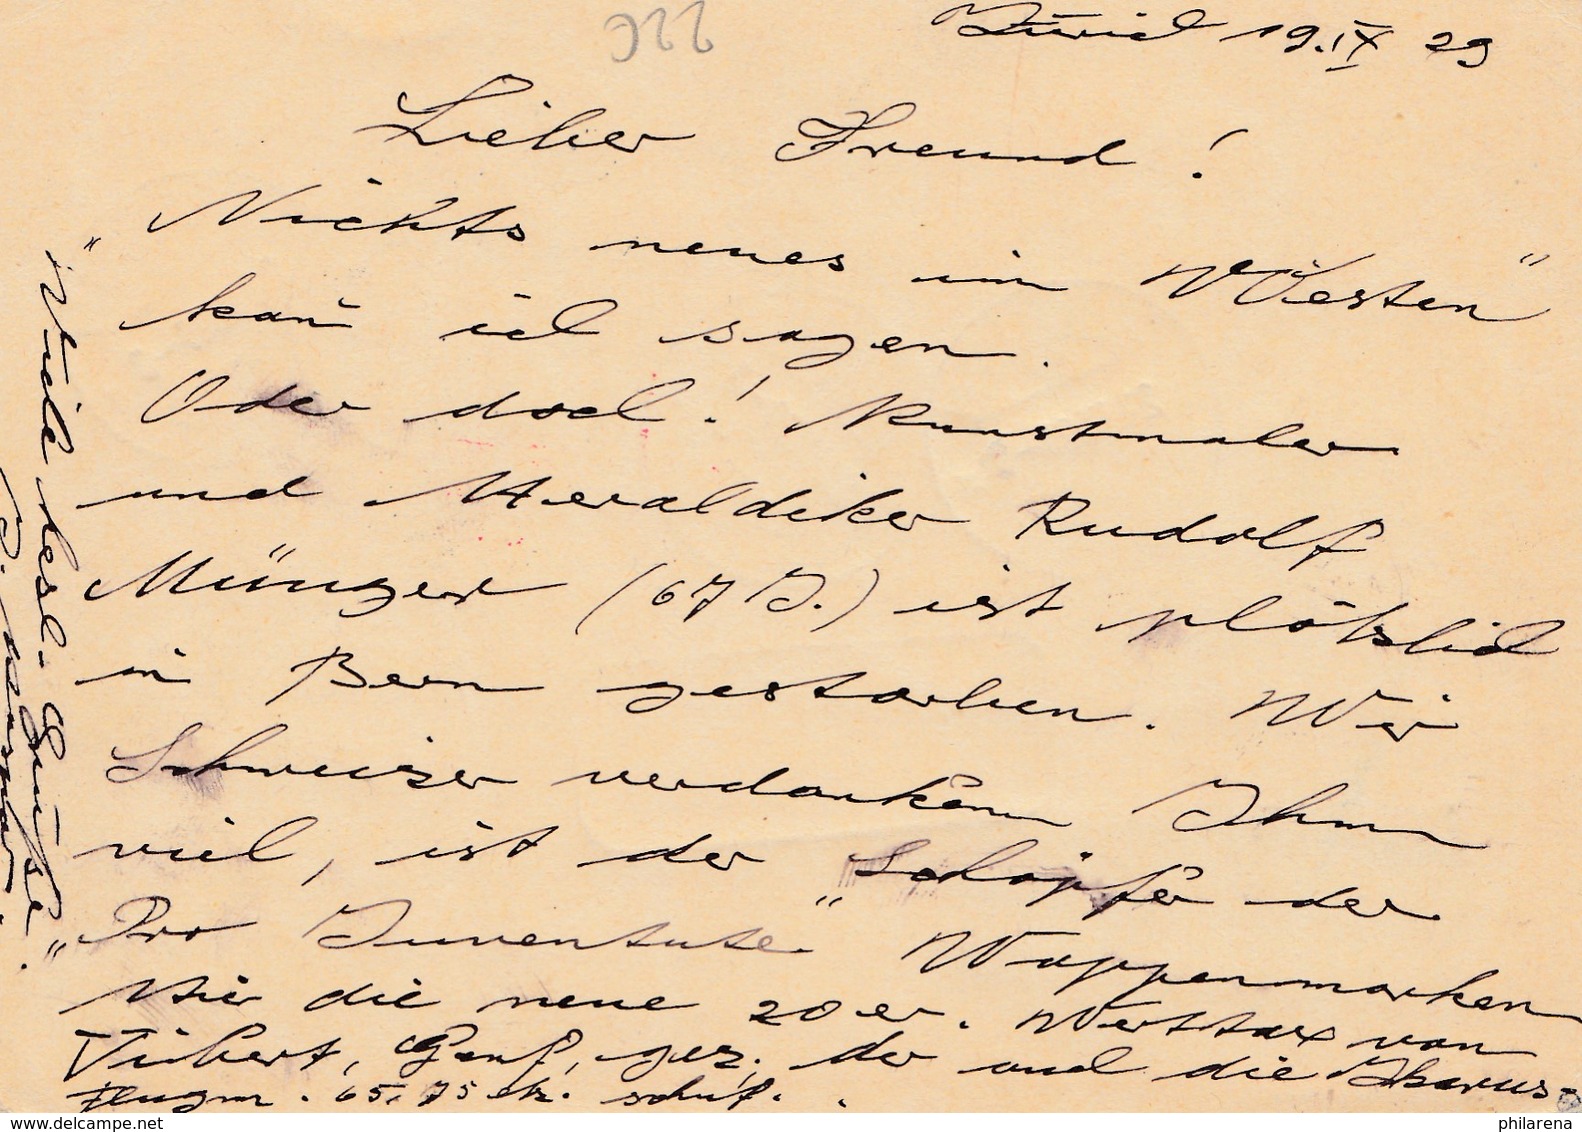 Zürich 19.IX 29
Lieber Freund!
"Nichts neues im Westen"
kan̄ ich sagen.
Oder doch! Kunstmaler
und Heraldiker Rudolf
Münger (67 J.) ist plötzlich
in Bern gestorben. Wir
Schweizer verdanken Ihm
viel, ist der Schöpfer der
"Pro Juventute" Wappenmarken
Hier die neue 20er. Werttax von
Vibert, Genf, gez. der auch die Ikarus-
Flugm. 65, 75 ct. schuf.
Viele herzl. Grüsse
www.philarena.net
philarena